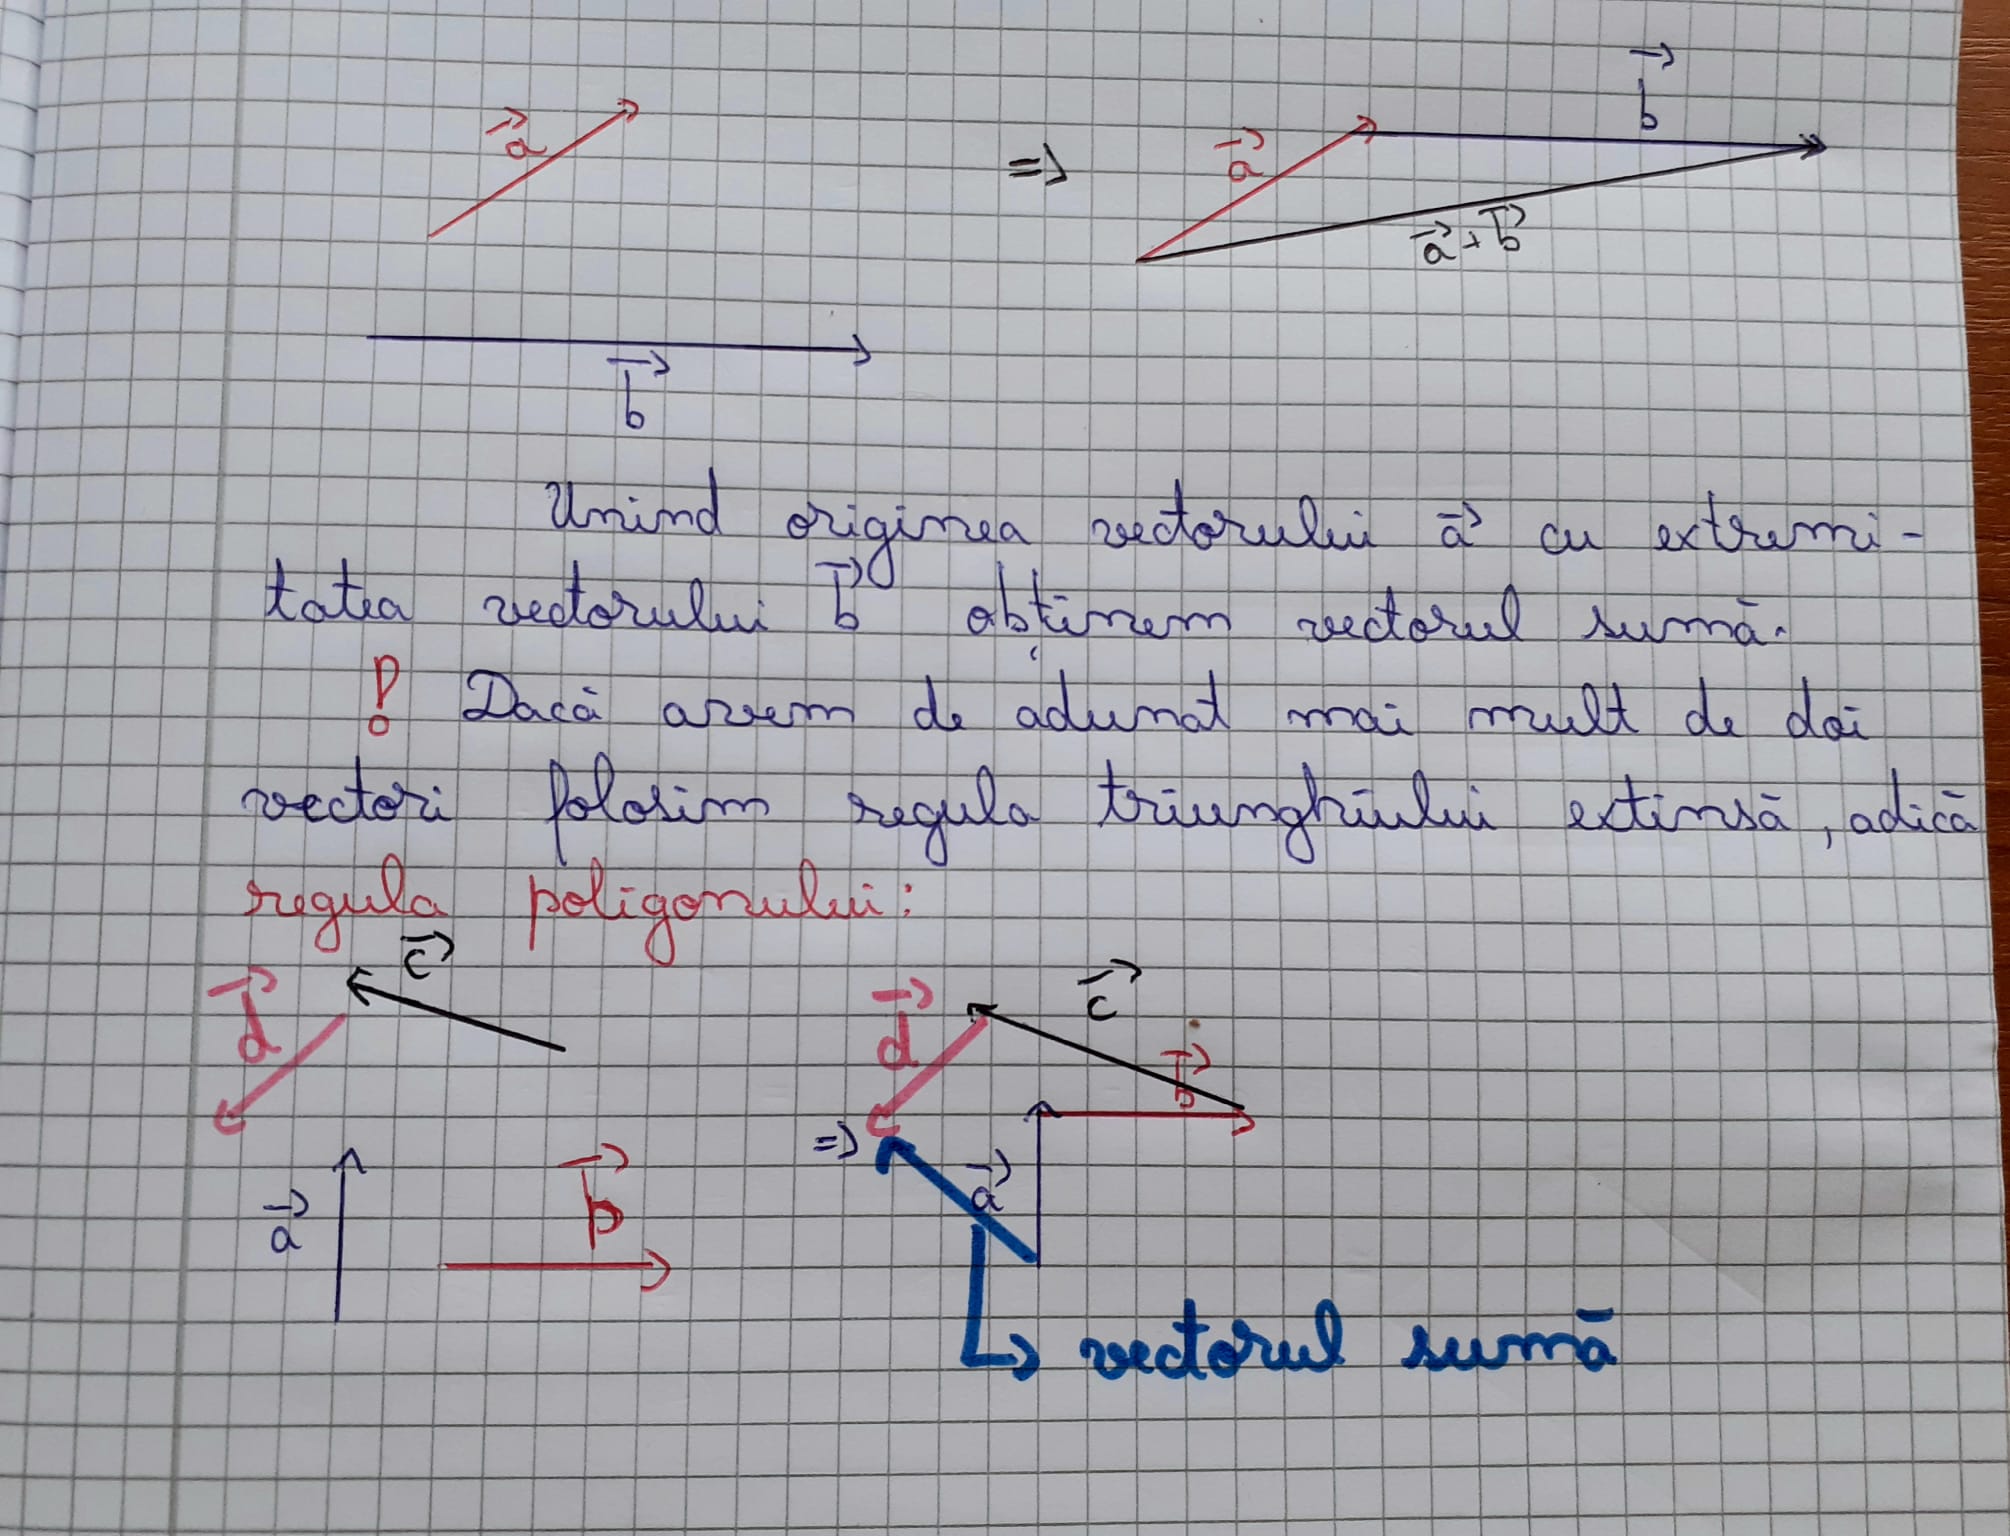 a⃗
=>
a⃗
b⃗
a⃗+b⃗
b⃗
Unind originea vectorului a⃗ cu extremi-
tatea vectorului b⃗ obținem vectorul sumă.
! Dacă avem de adunat mai mult de doi
vectori folosim regula triunghiului extinsă, adică
regula poligonului:
d⃗
c⃗
a⃗
b⃗
=>
d⃗
c⃗
b⃗
a⃗
↳ vectorul sumă